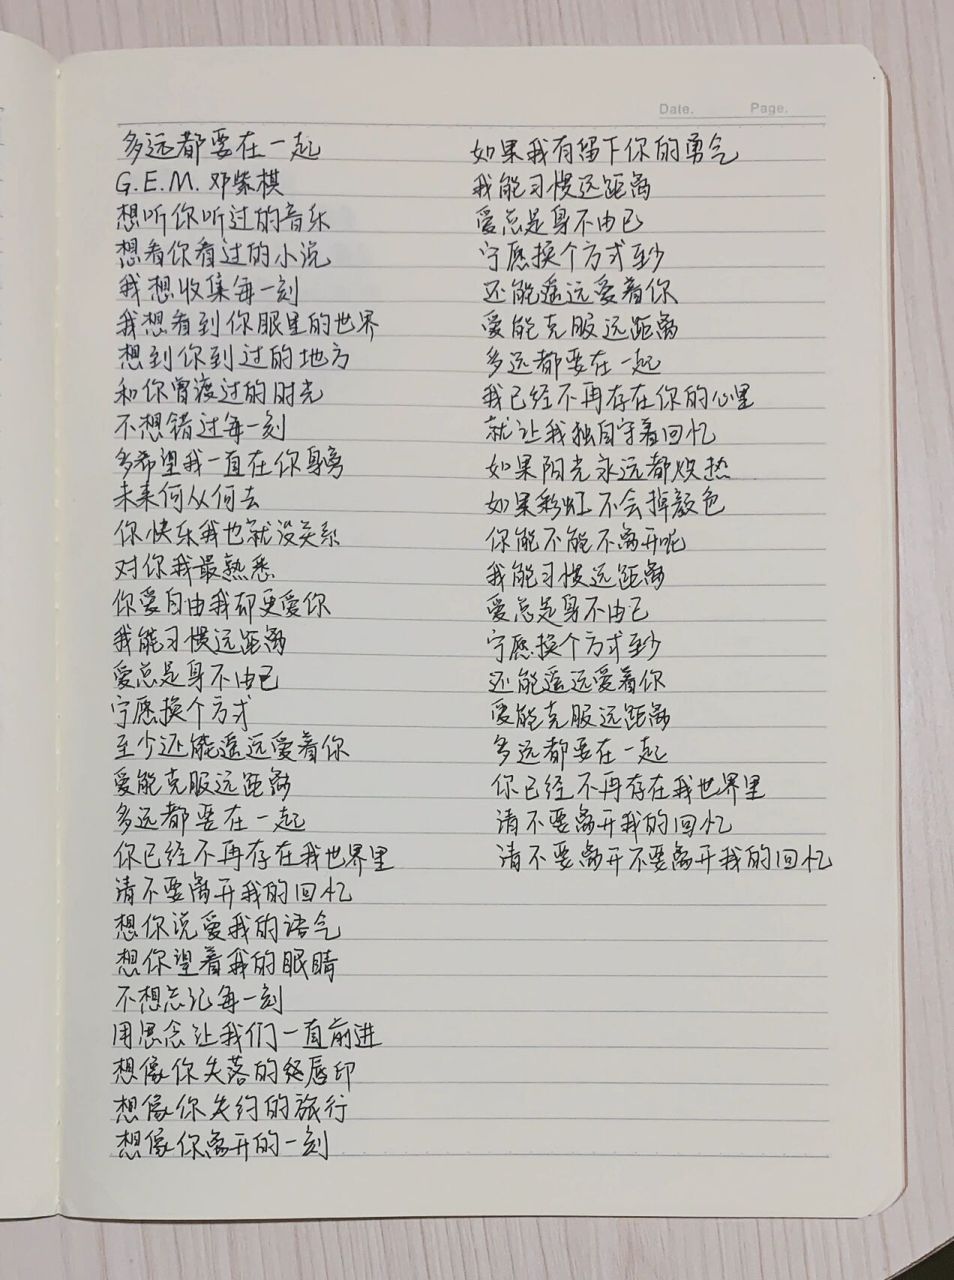 Date.
Page.
多远都要在一起
G.E.M.邓紫棋
想听你听过的音乐
想看你看过的小说
我想收集每一刻
我想看到你眼里的世界
想到你到过的地方
和你曾渡过的时光
不想错过每一刻
多希望我一直在你身旁
未来何从何去
你快乐我也就没关系
对你我最熟悉
你爱自由我却更爱你
我能习惯远距离
爱总是身不由己
宁愿换个方式
至少还能遥远爱着你
爱能克服远距离
多远都要在一起
你已经不再存在我世界里
请不要离开我的回忆
想你说爱我的语气
想你望着我的眼睛
不想忘记每一刻
用思念让我们一直前进
想像你失落的唇印
想像你失约的旅行
想像你离开的一刻
如果我有留下你的勇气
我能习惯远距离
爱总是身不由己
宁愿换个方式至少
还能遥远爱着你
爱能克服远距离
多远都要在一起
我已经不再存在你的心里
就让我独自守着回忆
如果阳光永远都炽热
如果彩虹不会掉颜色
你能不能不离开呢
我能习惯远距离
爱总是身不由己
宁愿换个方式至少
还能遥远爱着你
爱能克服远距离
多远都要在一起
你已经不再存在我世界里
请不要离开我的回忆
请不要离开不要离开我的回忆